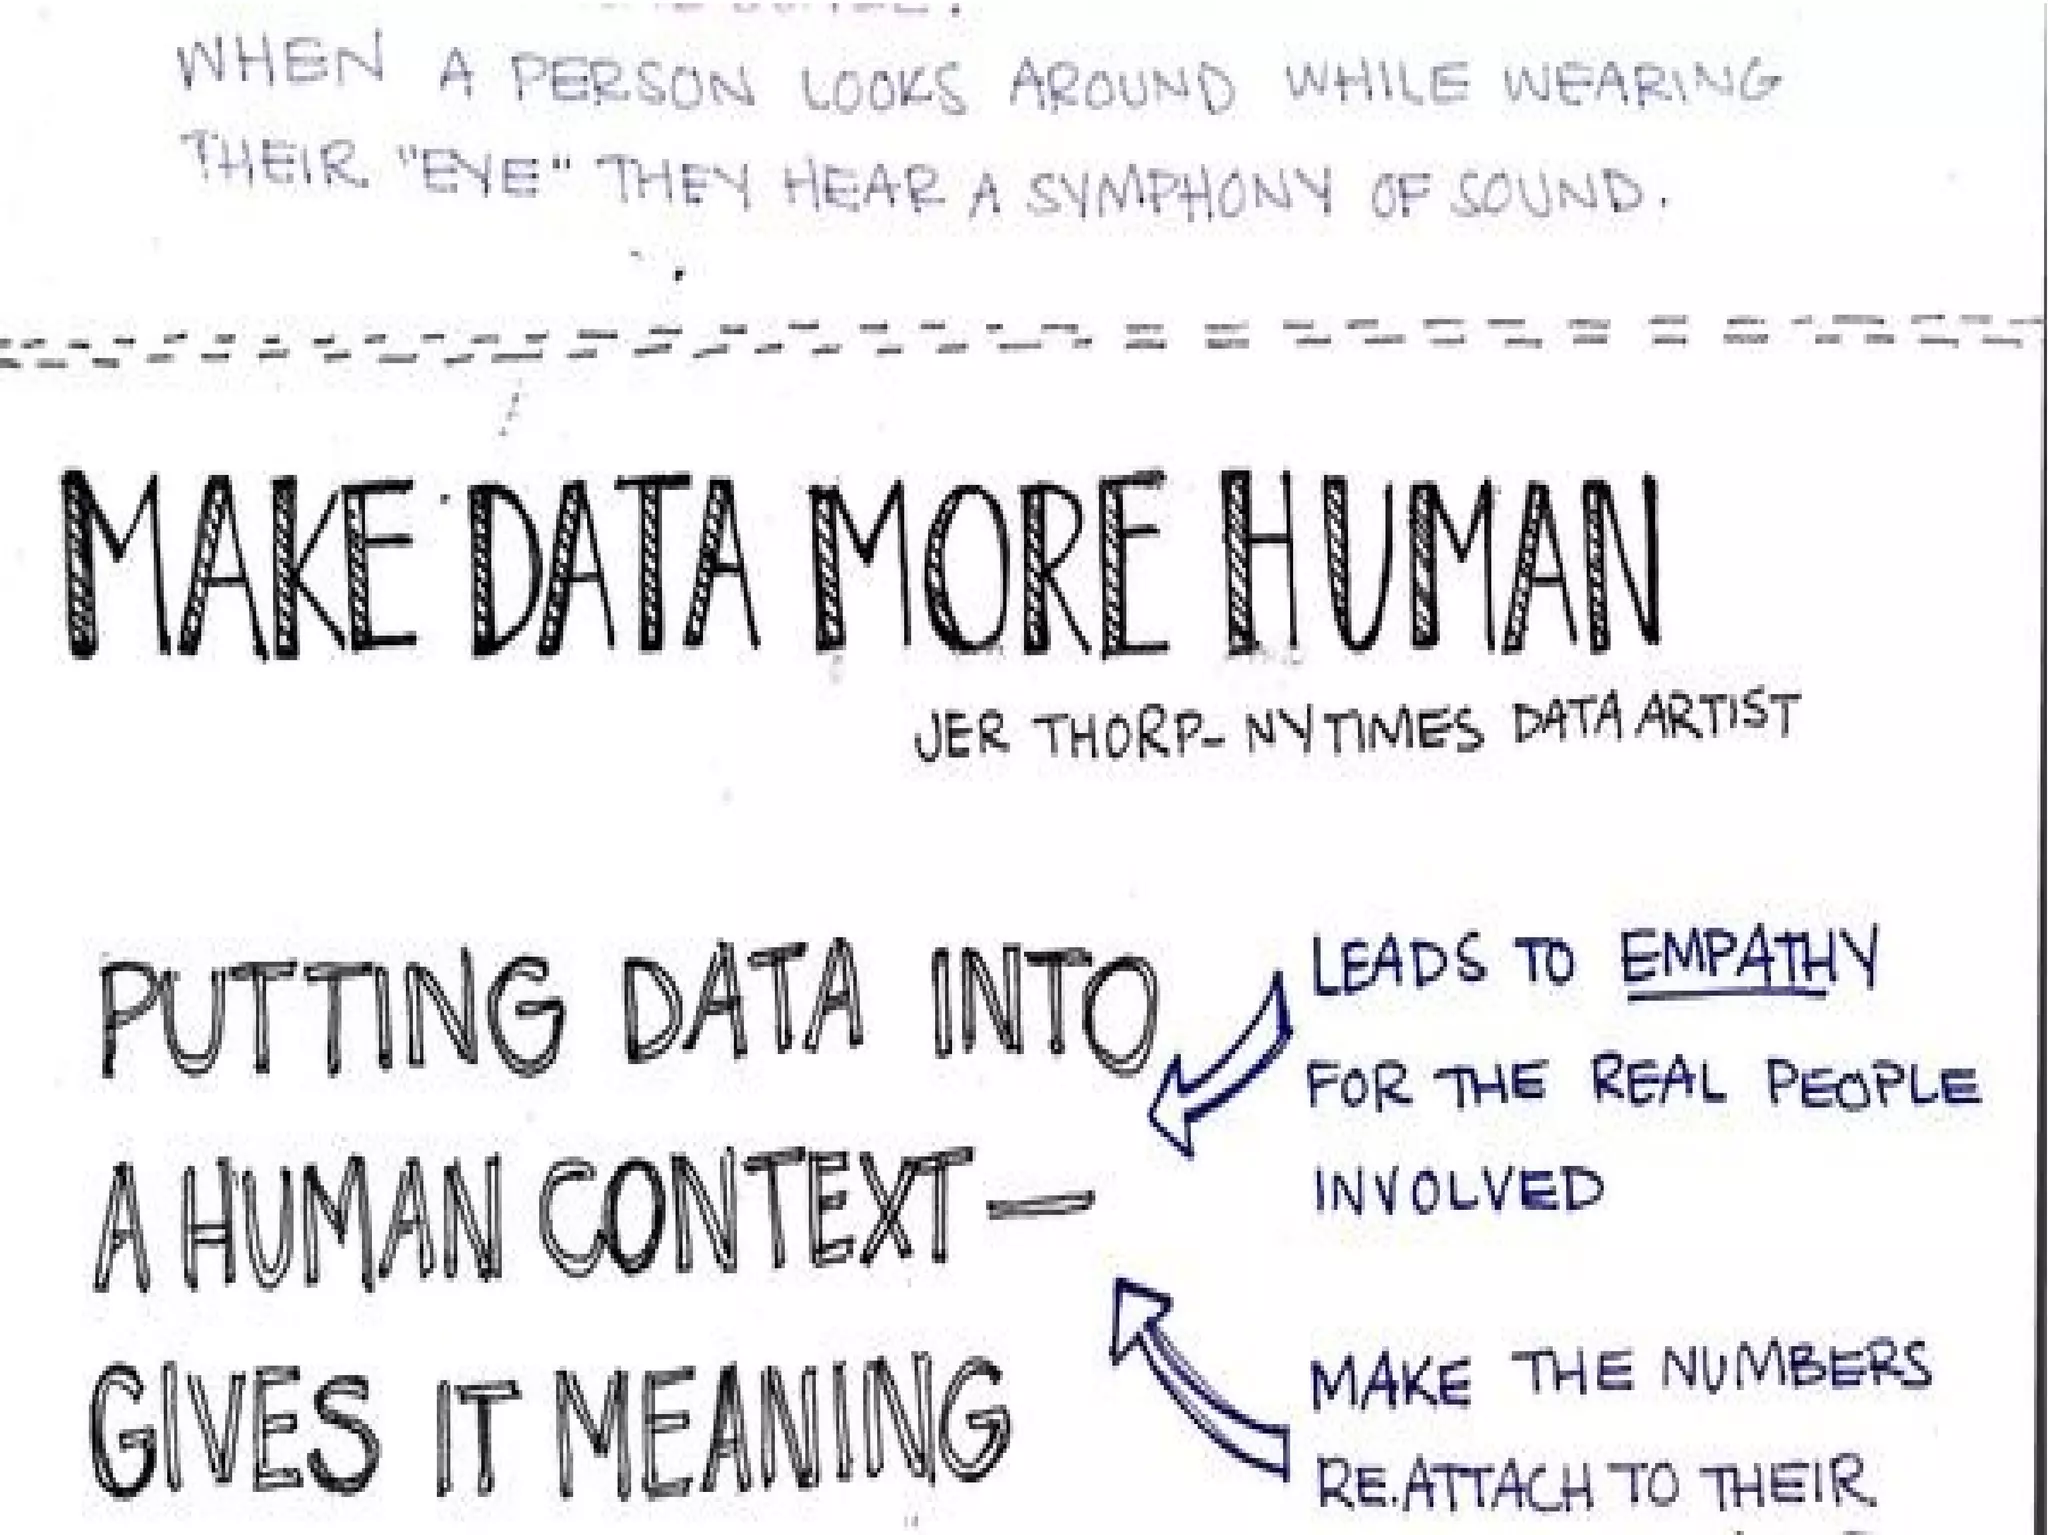 WHEN A PERSON LOOKS AROUND WHILE WEARING
THEIR "EYE" THEY HEAR A SYMPHONY OF SOUND.
MAKE DATA MORE HUMAN
JER THORP- NYTIMES DATA ARTIST
PUTTING DATA INTO
A HUMAN CONTEXT—
GIVES IT MEANING
LEADS TO EMPATHY
FOR THE REAL PEOPLE
INVOLVED
MAKE THE NUMBERS
RE.ATTACH TO THEIR